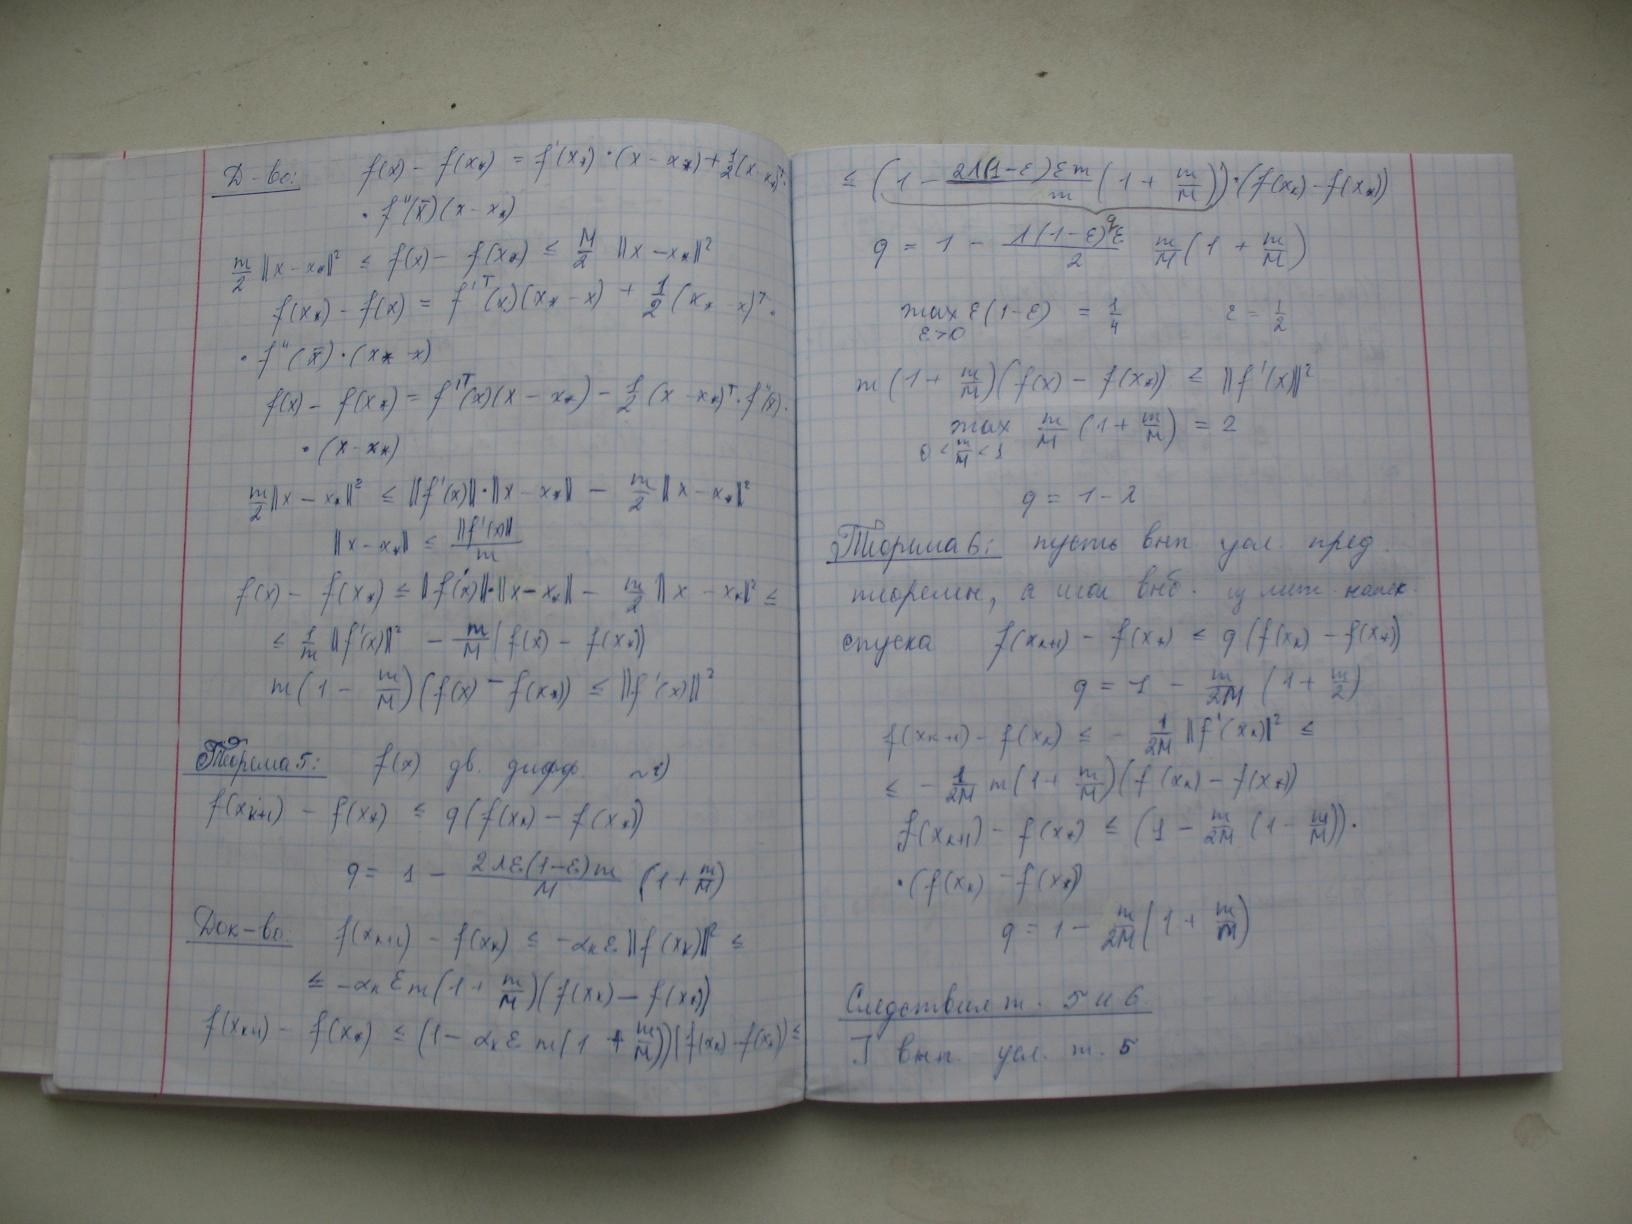 Д-во: f(x) - f(x*) = f'(x*)·(x - x*) + 1/2 (x - x*)ᵀ·
· f''(x̄)(x - x*)
m/2 ||x - x*||² ≤ f(x) - f(x*) ≤ M/2 ||x - x*||²
f(x*) - f(x) = f'ᵀ(x)(x* - x) + 1/2 (x* - x)ᵀ·
· f''(x̄)·(x* - x)
f(x) - f(x*) = f'ᵀ(x)(x - x*) - 1/2 (x - x*)ᵀ·f''(x̄)·
· (x - x*)
m/2 ||x - x*||² ≤ ||f'(x)||·||x - x*|| - m/2 ||x - x*||²
||x - x*|| ≤ ||f'(x)||/m
f(x) - f(x*) ≤ ||f'(x)||·||x - x*|| - m/2 ||x - x*||² ≤
≤ 1/m ||f'(x)||² - m/M (f(x) - f(x*))
m(1 - m/M)(f(x) - f(x*)) ≤ ||f'(x)||²
Теорема 5: f(x) дв. дифф.
f(xₖ₊₁) - f(x*) ≤ q(f(xₖ) - f(x*))
q = 1 - 2λε(1-ε)m/M (1 + m/M)
Док-во. f(xₖ₊₁) - f(xₖ) ≤ -αₖε||f'(xₖ)||² ≤
≤ -αₖεm(1 + m/M)(f(xₖ) - f(x*))
f(xₖ₊₁) - f(x*) ≤ (1 - αₖε m(1 + m/M))(f(xₖ) - f(x*)) ≤
≤ (1 - 2λ(1-ε)εm/m (1 + m/M))·(f(xₖ) - f(x*))
q
q = 1 - λ(1-ε)ε/2 m/M (1 + m/M)
max ε(1-ε) = 1/4 ε = 1/2
ε>0
m(1 + m/M)(f(x) - f(x*)) ≤ ||f'(x)||²
max m/M (1 + m/M) = 2
0 < m/M < 1
q = 1 - λ
Теорема 6: пусть вып. усл. пред.
теоремы, а шаг выб. из
спуска f(xₖ₊₁) - f(x*) ≤ q(f(xₖ) - f(x*))
q = 1 - m/2M (1 + m/2)
f(xₖ₊₁) - f(xₖ) ≤ - 1/2M ||f'(xₖ)||² ≤
≤ - 1/2M m(1 + m/M)(f(xₖ) - f(x*))
f(xₖ₊₁) - f(x*) ≤ (1 - m/2M (1 - m/M))·
·(f(xₖ) - f(x*))
q = 1 - m/2M (1 + m/M)
Следствия т. 5 и 6
I вып. усл. т. 5